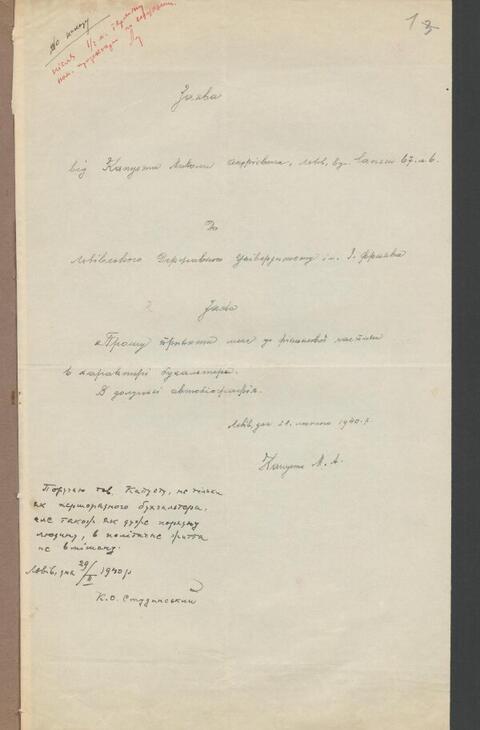 До наказу
1 3
Заява
від Капусти Миколи Андрієвича, Львів, вул.
До
Львівського Державного Університету ім. І. Франка
Заява
Прошу прийняти мене до фінансової частини
в характері бухгалтера.
В долученні автобіографія.
Львів, дня 21. лютого 1940 р.
Капуста М. А.
Поручаю тов. Капусту, не тільки
як першорядного бухгалтера,
але також як дуже порядну
людину, в політичне життя
не вмішану.
Львів, дня 29/II 1940 р
К. О. Студинський